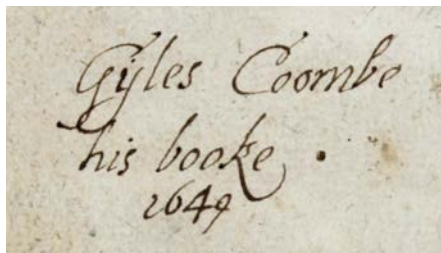 Gyles Coombe
his booke .
1649